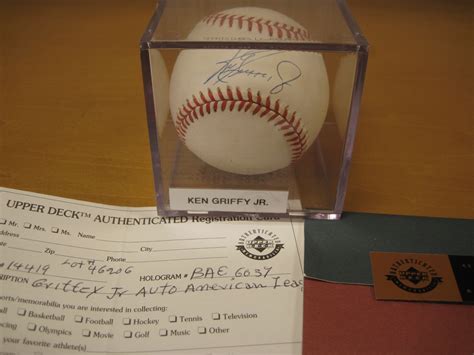 KEN GRIFFY JR.
UPPER DECK™ AUTHENTICATED Registration Card
Mr. Mrs. Ms.
Zip Phone
#14419 LOT #46206 HOLOGRAM # BAE 6037
DESCRIPTION Griffey Jr Auto American Leag
sports/memorabilia you are interested in collecting:
Basketball Football Hockey Television
Olympics Movie Golf Music Other
your favorite athlete(s)
AUTHENTICATED
UPPER DECK
AUTHENTICATED
UPPER DECK